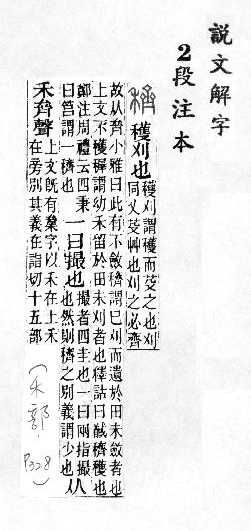 說文解字
2段注本
穫刈也
穫刈謂穫而芟之也刈
同乂芟艸也刈之必齊
故从齊小雅曰此有不斂穧謂已刈而遺於田未斂者也
上文不穫穉謂幼禾留於田未刈者也釋詁曰馘穧穫也
鄭注周禮云四秉
曰筥謂一穧也
一曰撮也
撮者四圭也一曰兩指撮
也然則穧之別義謂少也
从
禾齊聲
上文旣有字以禾在上禾
在旁別其義在詣切十五部
(禾部. P328)